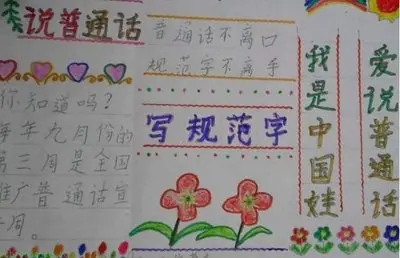 说普通话
你知道吗？
每年九月份的
第三周是全国
推广普通话宣
周。
普通话不离口
规范字不离手
写规范字
我是中国娃
爱说普通话